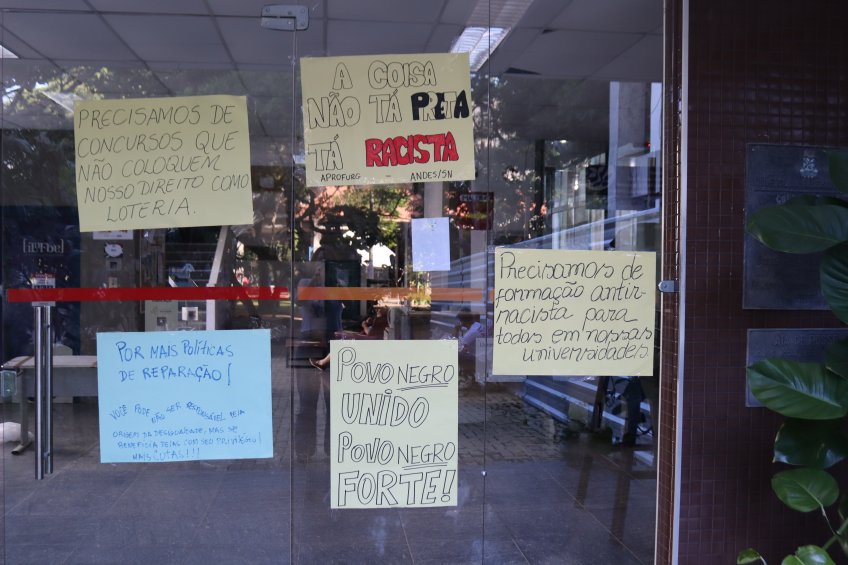 PRECISAMOS DE
CONCURSOS QUE
NÃO COLOQUEM
NOSSO DIREITO COMO
LOTERIA.
A COISA
NÃO TÁ PRETA
TÁ RACISTA
APROFURG - ANDES/SN
Precisamos de
formação antir-
racista para
todos em nossas
universidades
POR MAIS POLÍTICAS
DE REPARAÇÃO!
VOCÊ PODE NÃO SER RESPONSÁVEL PELA
ORIGEM DA DESIGUALDADE, MAS SE
BENEFICIA DELAS COM SEU PRIVILÉGIO!
MAIS COTAS!!!
POVO NEGRO
UNIDO
POVO NEGRO
FORTE!